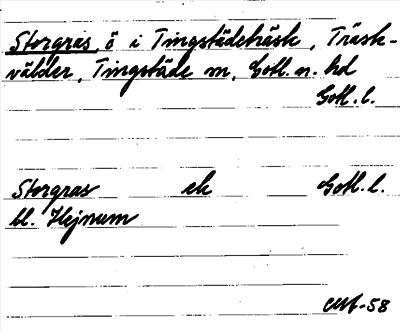 Storgras, ö i Tingstädeträsk, Träsk-
välder, Tingstäde sn, Gotl. n. hd
Gotl. l.
Storgras ek Gotl. l.
bl. Hejnum
-58